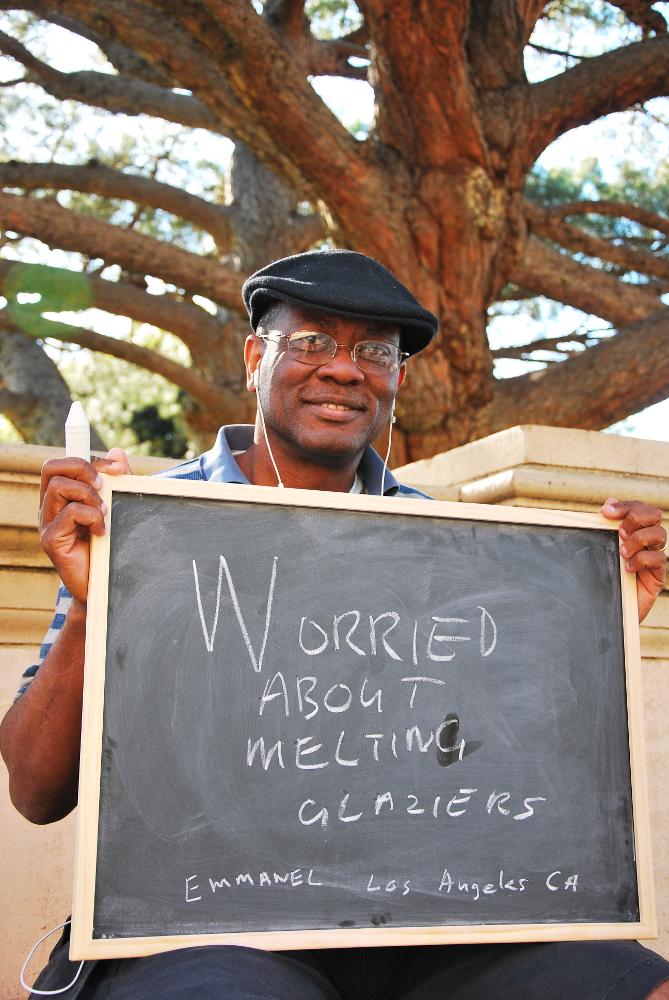 WORRIED
ABOUT
MELTING
GLAZIERS
EMMANEL Los Angeles CA